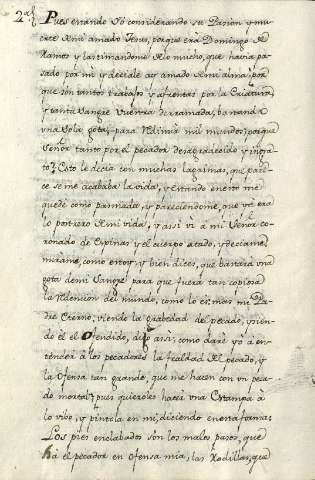 2ª
Pues estando Yo considerando su Pasion y mu-
erte a mi amado Jesus, porque era Domingo de
Ramos y lastimandome Yo mucho, que havia pa-
sado por mi y deciale ay amado de mi alma, por
que son tantos trabajos y afrentas por la Criatura
y tanta Sangre Vuestra derramada, bastando
vna Sola gota, para Redimir mil mundos, porque
Señor tanto por el pecador desagradecido y ingra-
to? Esto le decia con muchas lagrimas, que pare-
ce se me acababa la vida, y estando en esto me
quedé como pasmada, y pareciendome, que ya era
lo postrero de mi vida, y assi vi a mi Señor co-
ronado de Espinas y el cuerpo atado, y deciame,
mirame, como estoy, y bien dices, que bastara vna
gota de mi Sangre para que fuera tan copiosa
la Redencion del mundo, como lo es, mas mi Pa-
dre Eterno, viendo la grabedad del pecado, y sien-
do él el Ofendido, dijo assi: como daré yo à en-
tender à los pecadores la fealdad del pecado, y
la Ofensa tan grande, que me hacen con vn peca-
do mortal? pues quieroles hacer vna Estampa à
lo vibo, y pintola en mi, diciendo en esta forma:
Los pies enclabados son los malos pasos, que
há el pecador en Ofensa mia, las Rodillas, que